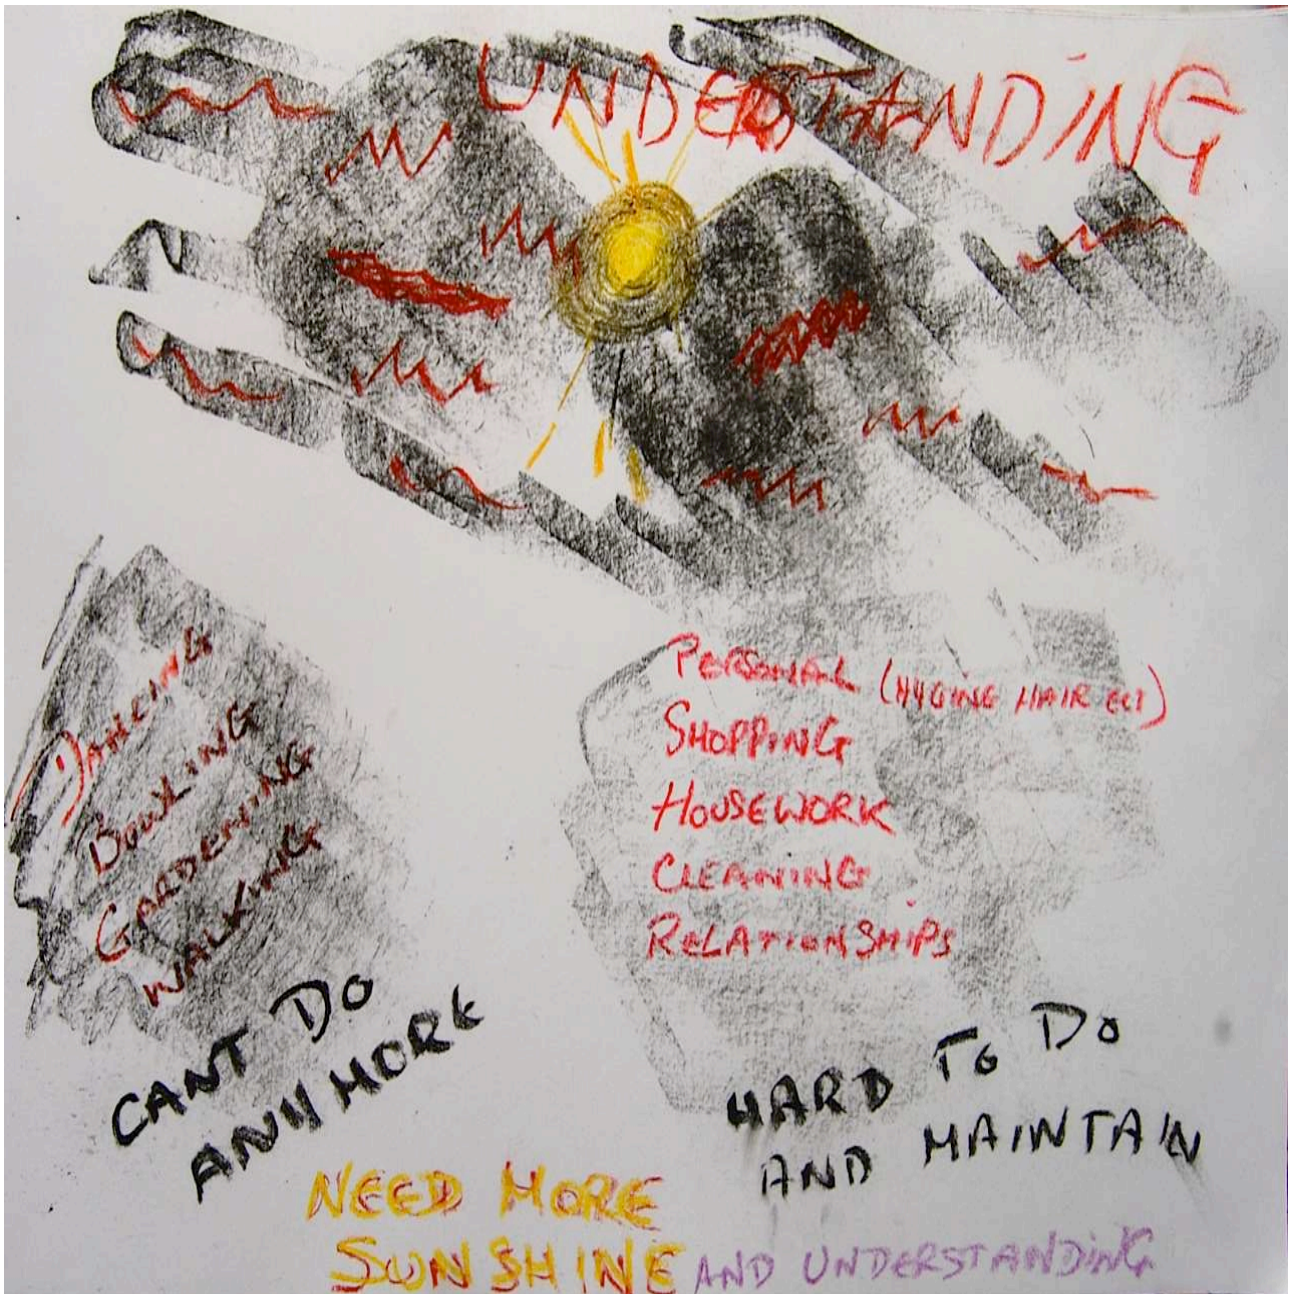 UNDERSTANDING
DANCING
BOWLING
GARDENING
WALKING
CANT DO
ANYMORE
PERSONAL (HYGINE HAIR ECT)
SHOPPING
HOUSEWORK
CLEANING
RELATIONSHIPS
HARD TO DO
AND MAINTAIN
NEED MORE
SUNSHINE AND UNDERSTANDING